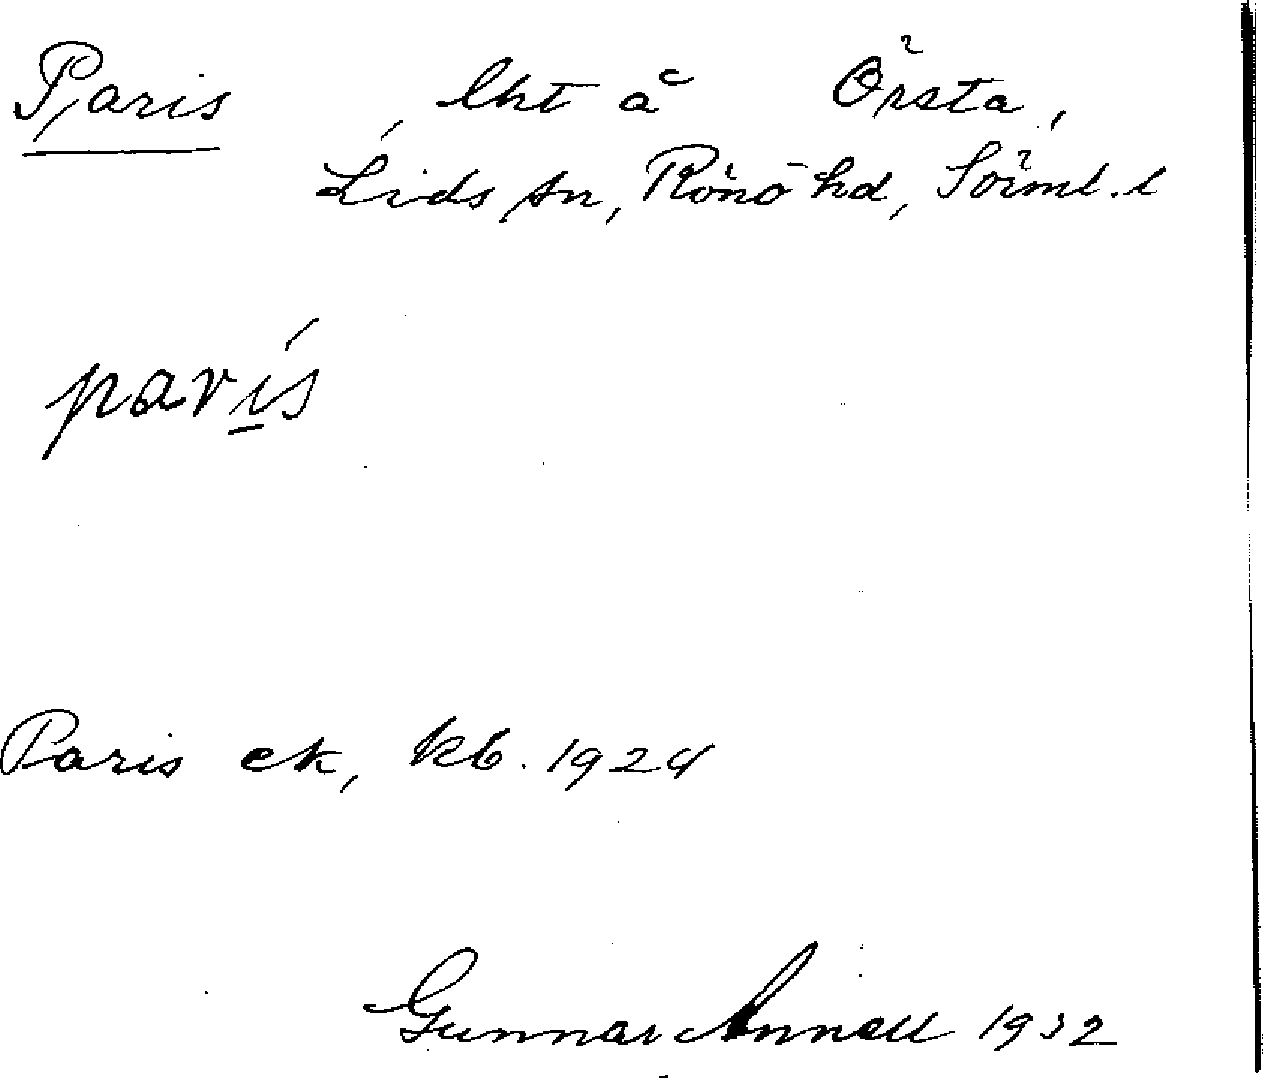 Paris, lht å Örsta,
Lids sn, Rönö hd, Sörml. l
parís
Paris ek, kb. 1924
Gunnar Annell 1932